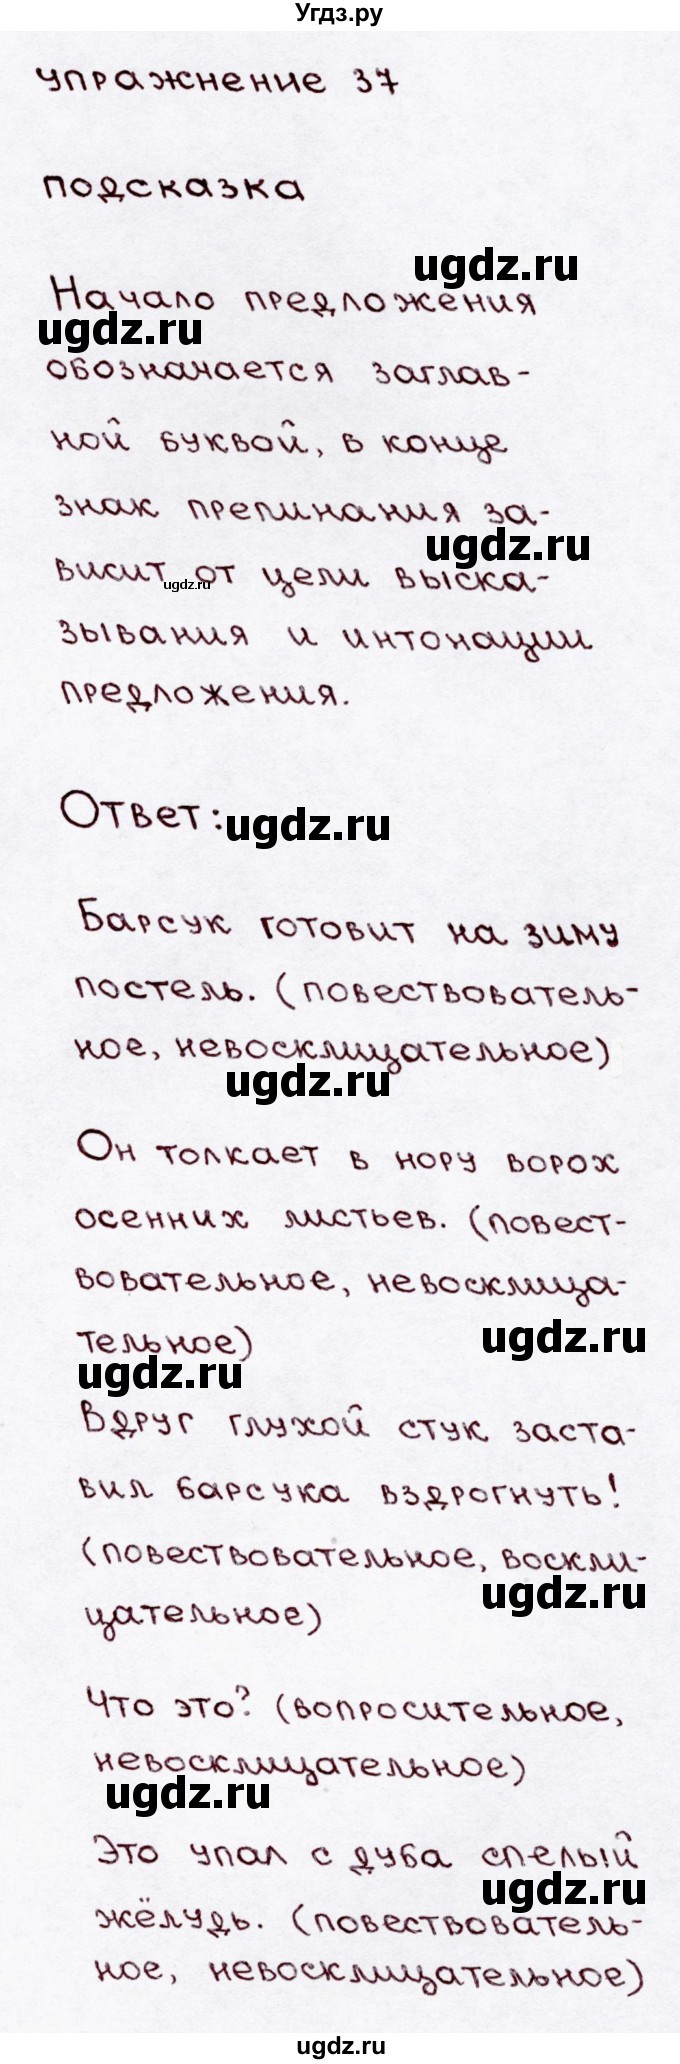 Угдз.ру
упражнение 37
подсказка
ugdz.ru
Начало предложения
ugdz.ru
обозначается заглав-
ной буквой, в конце
знак препинания за-
ugdz.ru
висит от цели выска-
ugdz.ru
зывания и интонации
предложения.
Ответ:
ugdz.ru
Барсук готовит на зиму
постель. (повествователь-
ное, невосклицательное)
ugdz.ru
Он толкает в нору ворох
осенних листьев. (повест-
вовательное, невосклица-
ugdz.ru
тельное)
ugdz.ru
Вдруг глухой стук заста-
вил барсука вздрогнуть!
(повествовательное, воскли-
ugdz.ru
цательное)
Что это? (вопросительное,
невосклицательное)
ugdz.ru
Это упал с дуба спелый
ugdz.ru
жёлудь. (повествователь-
ное, невосклицательное)
ugdz.ru